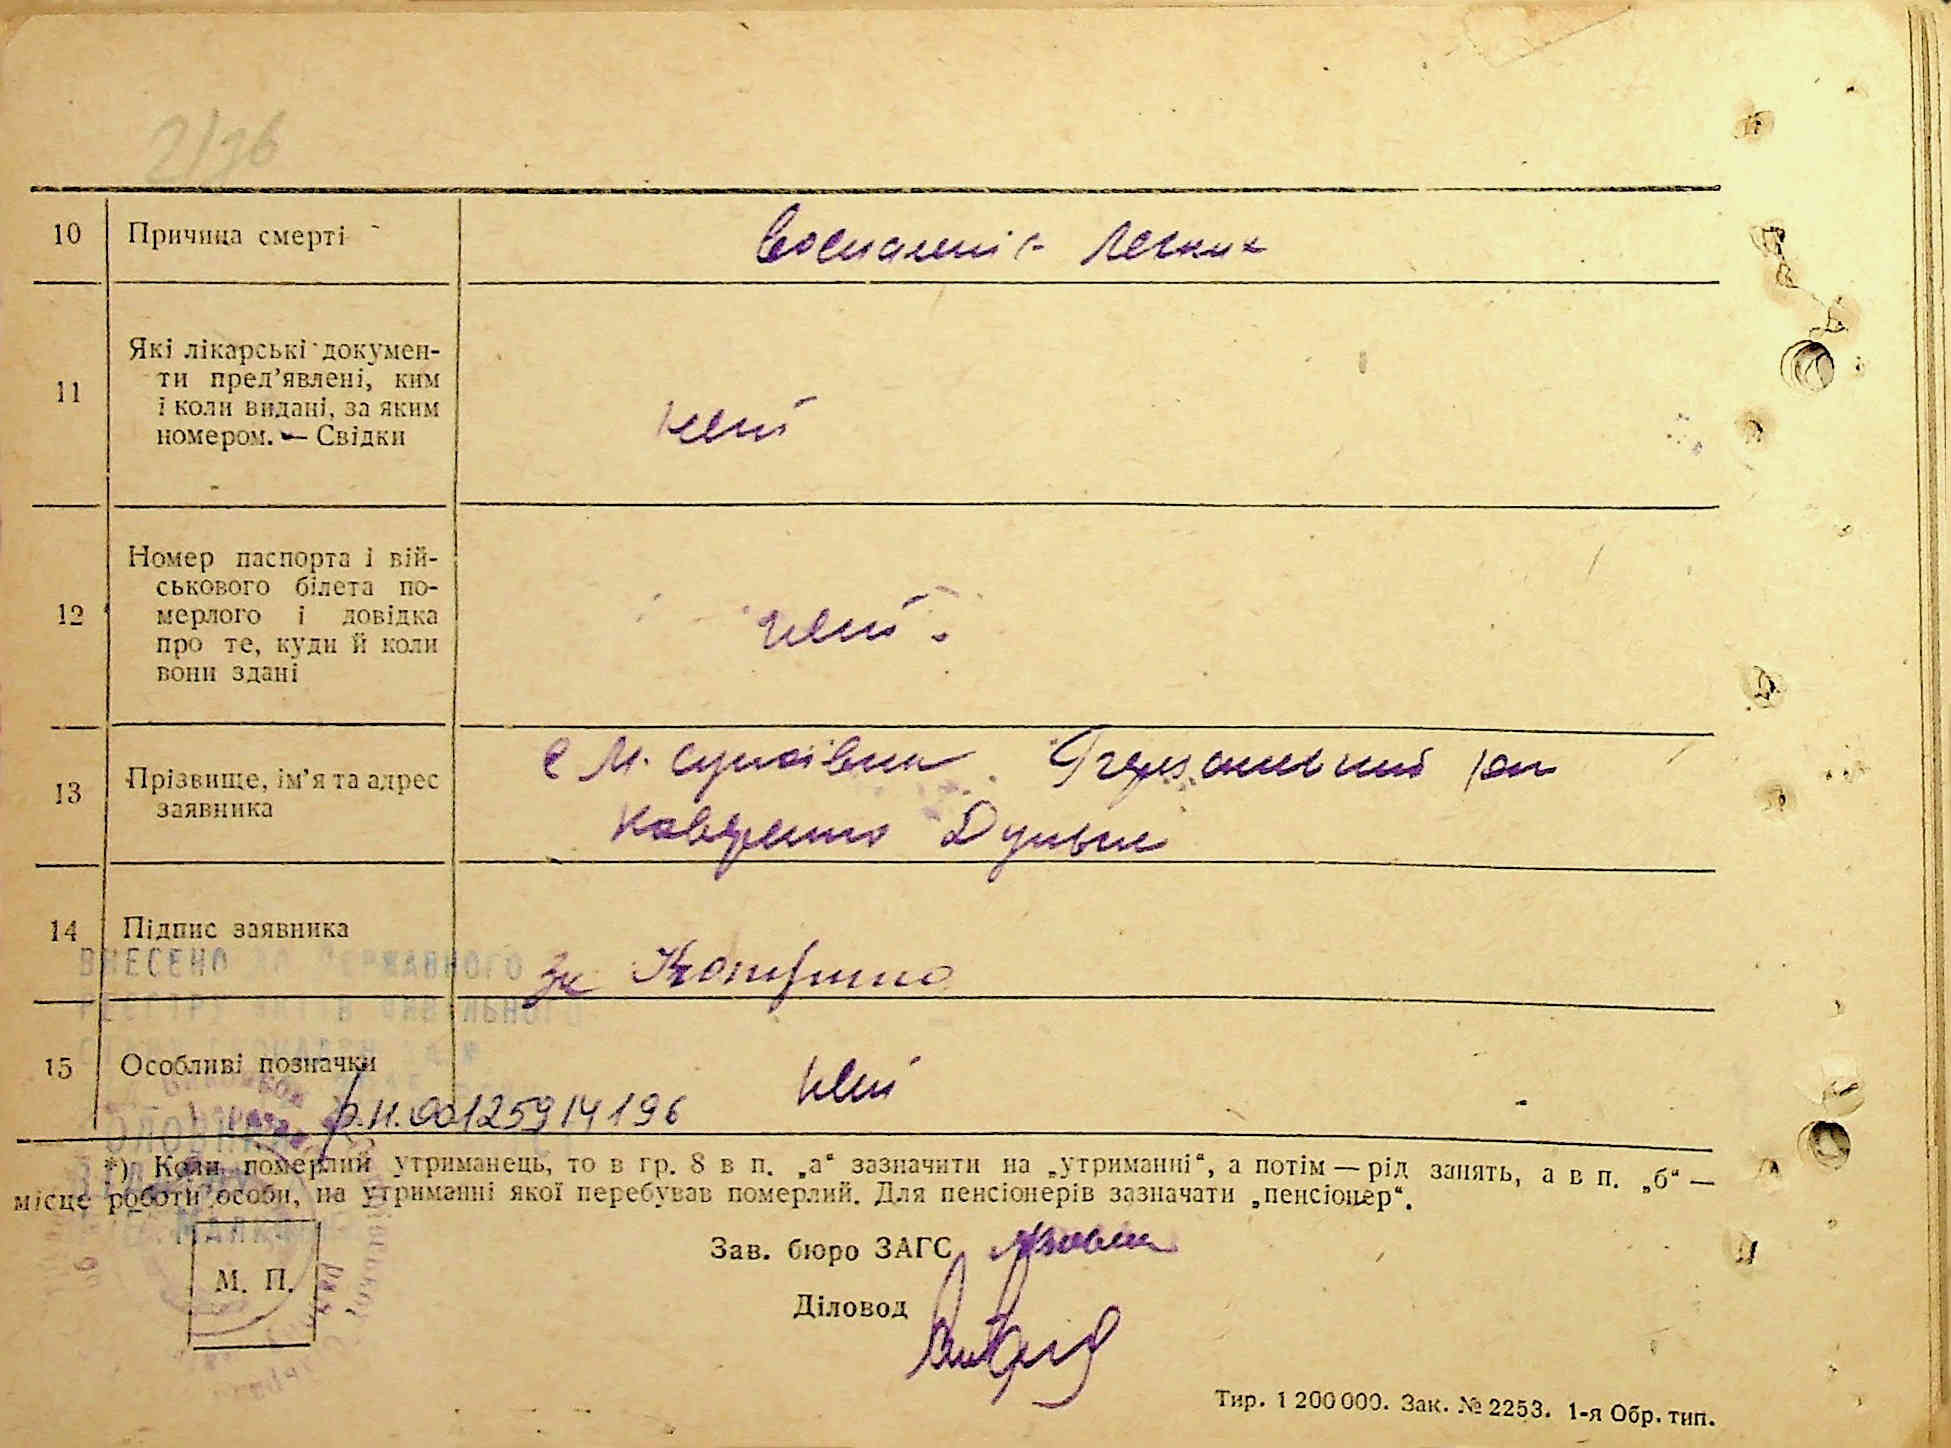 2/36
10 Причина смерті Воспаленія Легких
11 Які лікарські докумен-
ти пред’явлені, ким
і коли видані, за яким
номером. — Свідки
нет
12 Номер паспорта і вій-
ськового білета по-
мерлого і довідка
про те, куди й коли
вони здані
нет.
13 Прізвище, ім’я та адрес
заявника
14 Підпис заявника
за
ВНЕСЕНО ДО ДЕРЖАВНОГО
15 Особливі позначки
нет
р.н. 00125914196
*) Коли померлий утриманець, то в гр. 8 в п. „а“ зазначити на „утриманні“, а потім — рід занять, а в п. „б“ —
місце роботи особи, на утриманні якої перебував померлий. Для пенсіонерів зазначати „пенсіонер“.
Зав. бюро ЗАГС
М. П.
Діловод
Тир. 1 200 000. Зак. № 2253. 1-я Обр. тип.